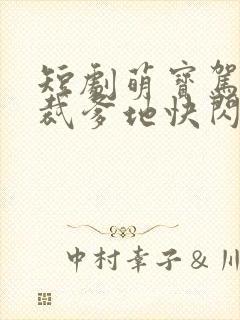 短劇萌寶駕
裁爹地快閃
中村幸子 & 川